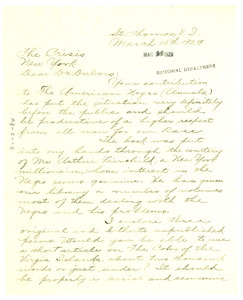 St. Thomas, V.I.
March 11th 1929
The Crisis
MAR 1929
New York
EDITORIAL DEPARTMENT
Dear Dr Dubois:
Your contribution
to The American Negro (Annals)
has put the situation very definitely
before the public and should
be productive of a higher respect
from all men for our Race.
The book was put
into my hands through the courtesy
of Mr Arthur Fairchild, a New York
millionaire, whose interest in the
Negro seems genuine. He has
our library a number of volumes
most of them dealing with the
Negro and his problems.
I enclose three
original and hitherto unpublished
poems. Would you be able to use
a short article on The Color of the
Virgin Islands about two thousand
words or just under? It should
be properly a social and economic